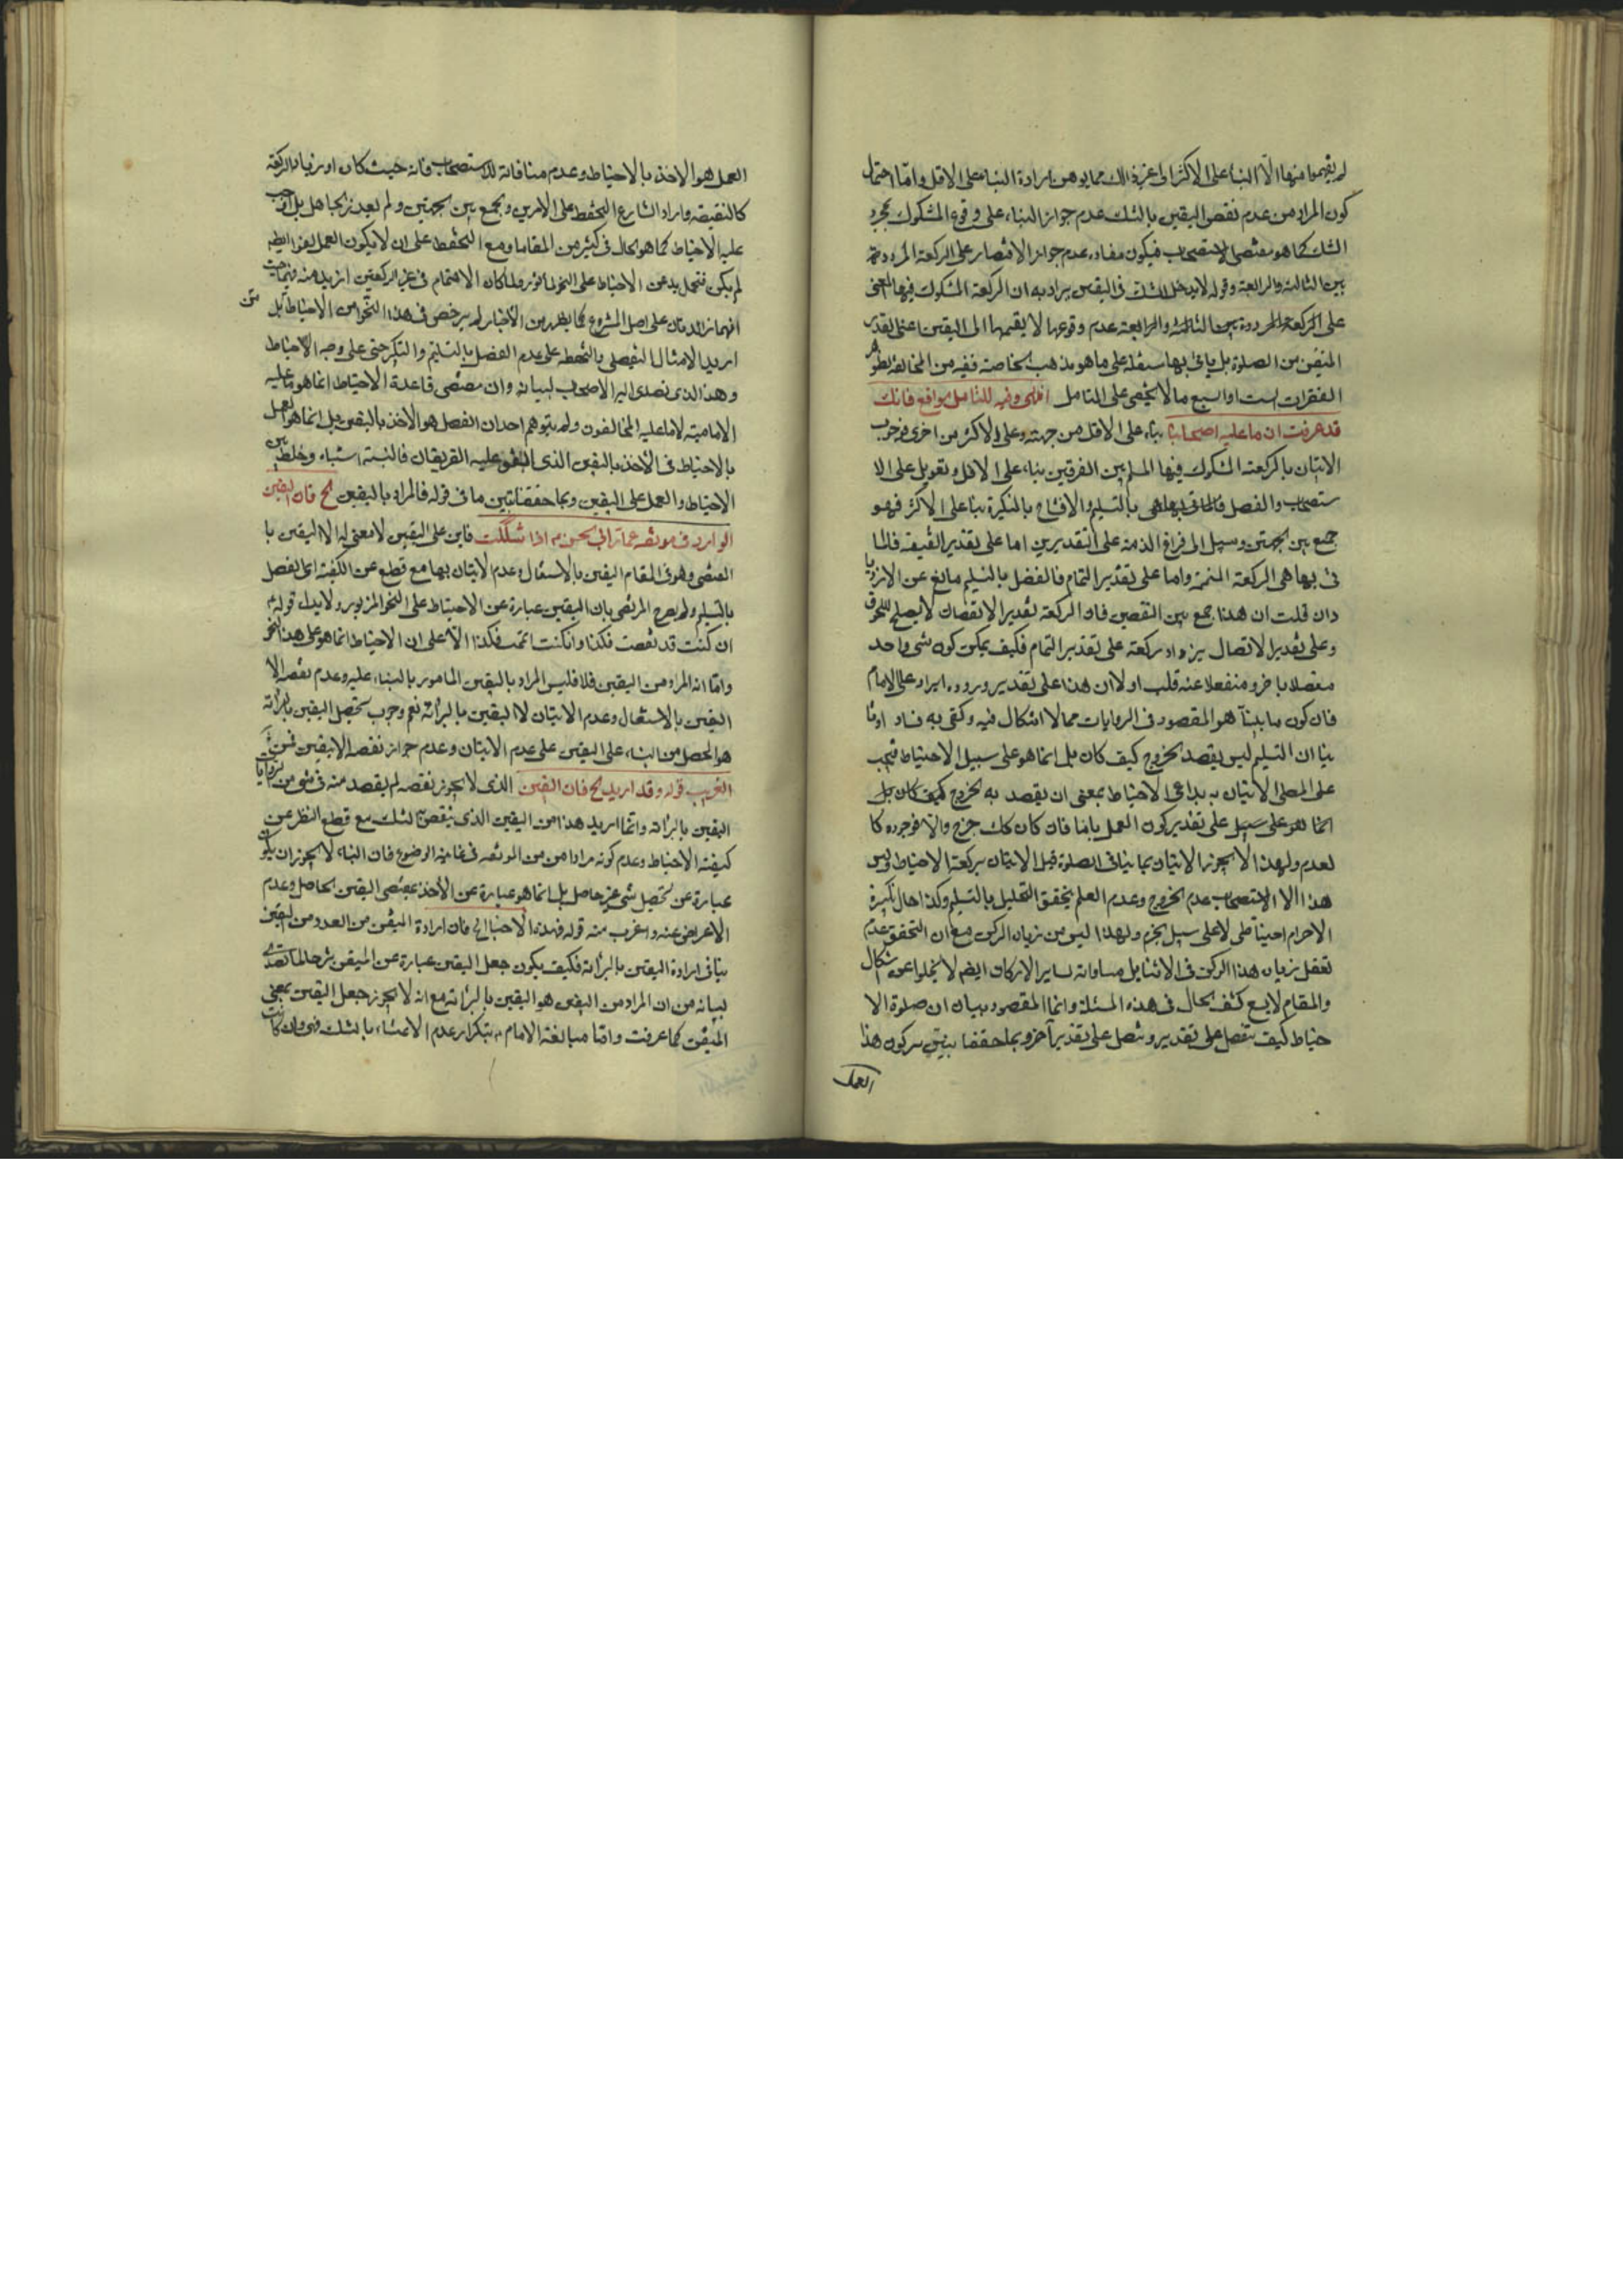 لم يقيموا منها الا البناء على الاكثر الى غير ذلك مما يوهن ارادة البناء على الاقل واما احتمال
كون المراد من عدم نقض اليقين بالشك عدم جواز البناء على وقوع المشكوك بمجرد
الشك كما هو مقتضى الاستصحاب فيكون مفاده عدم جواز الاقتصار على الركعة المرددة
بين الثالثة والرابعة وقوله لا يدخل الشك في اليقين يراد به ان الركعة المشكوك فيها المعنى
على الركعة المرددة بين الثالثة والرابعة عدم وقوعها لا يضمها الى اليقين اعنى القدر
المتيقن من الصلوة بل ياتى بها مستقلة على ما هو مذهب الخاصة ففيه من المخالفة لظواهر
الفقرات الست او السبع ما لا يخفى على المتامل انتهى وفيه للتامل مواقع فانك
قد عرفت ان ما عليه اصحابنا بناء على الاقل من جهة وعلى الاكثر من اخرى فوجوب
الاتيان بالركعة المشكوك فيها المسلم بين الفرقتين بناء على الاقل وتعويل على الا
ستصحاب والفصل بالتسليم والافتتاح بالتكبيرة بناء على الاكثر فهو
جمع بين الجهتين وسبيل الى فراغ الذمة على التقديرين اما على تقدير النقيصة فالما
تى بها هى الركعة المتممة واما على تقدير التمام فالفصل بالتسليم مانع عن الازديا
د ان قلت ان هذا جمع بين النقصين فان الركعة بتقدير الانفصال لا يصلح للحوق
وعلى تقدير الاتصال يزداد ركعة على تقدير التمام فكيف يمكن كون شى واحد
متصلا باخر ومنفصلا عنه قلت اولا ان هذا على تقدير وروده ايراد على الامام
فان كون ما بينا هو المقصود في الروايات مما لا اشكال فيه وكفى به فساد او ثا
نيا ان التسليم ليس بقصد الخروج كيف كان بل انما هو على سبيل الاحتياط فيجب
على المصلى الاتيان به بداعى الاحتياط بمعنى ان يقصد به الخروج كيف كان بل
انما هو على سبيل على تقدير كون العمل تاما فان كان كك خرج والا فوجوده كا
لعدم ولهذا لا يجوز الاتيان بما ينافى الصلوة قبل الاتيان بركعة الاحتياط وليس
هذا الا لاستصحاب عدم الخروج وعدم العلم بتحقق التحليل بالتسليم وكذا حال تكبيرة
الاحرام احتياطى لا على سبيل الجزم ولهذا ليس من زيادة الركن مع ان التحقق عدم
تعقل زيادة هذا الركن في الاثناء بل مساواته لساير الاركان ايضم لا يخلوا عن اشكال
والمقام لا يسع كشف الحال في هذه المسئلة وانما المقصود بيان ان صلوة الا
حتياط كيف تنفصل على تقدير وتتصل على تقدير آخر وبما حققنا تبين سر كون هذا
العمل
العمل هو الاخذ بالاحتياط وعدم منافاته للاستصحاب فانه حيث كان ازدياد الركعة
كالنقيصة واراد الشارع التحفظ على الامرين وجمع بين الجهتين ولم يعذر الجاهل بل اوجب
عليه الاحتياط كما هو الحال في كثير من المقامات ومع التحفظ على ان لا يكون العمل
لم يكن بد عن الاحتياط على النحو الماثور ولما كان الاهتمام في غير الركعتين ازيد منه فيهما حيث
انهما زائدتان على اصل المشروع كما يظهر من الاخبار لم يرخص في هذا النحو من الاحتياط بل
اريد الامتثال التفصلي بالتحفظ على عدم الفصل بالتسليم والتكبير حتى على وجه الاحتياط
وهذا الذى تصدى اليه الاصحاب لبيانه وان مقتضى قاعدة الاحتياط انما هو ما عليه
الامامية لا ما عليه المخالفون ولم يتوهم احد ان الفصل هو الاخذ باليقين بل انما هو العمل
بالاحتياط في الاخذ باليقين الذى اتفق عليه الفريقان فالنسبة اشتباه وخلط بين
الاحتياط والعمل على اليقين وبما حققنا تبين ما في قوله فالمراد باليقين الخ فان اليقين
الوارد في موثقة عمار ابى الحسن م اذا شككت فابن على اليقين لا معنى له الا اليقين با
المضى وهو في المقام اليقين بالاشتغال وعدم الاتيان بها مع قطع عن الكيفية اى الفصل
بالتسليم ولم يصرح المرتضى بان اليقين عبارة عن الاحتياط على النحو المزبور ولا يدل قوله م
ان كنت قد نقصت فكذا وان كنت اتممت فكذا الا على ان الاحتياط انما هو على هذا النحو
واما انه المراد من اليقين فلا فليس المراد باليقين المامور بالبناء عليه وعدم نقضه الا
اليقين بالاشتغال وعدم الاتيان لا اليقين بالبرائة نعم وجوب تحصيل اليقين بالبرائة
هو المحصل من البناء على اليقين على عدم الاتيان وعدم جواز نقضه الا بيقين فمن
الغريب قوله وقد اريد الخ فان اليقين الذى لا يجوز نقضه لم يقصد منه في شى من الروايات
اليقين بالبرائة وانما اريد هذا من اليقين الذى ينقض بالشك مع قطع النظر عن
كيفية الاحتياط وعدم كونه مرادا من من الموثقة في غاية الوضوح فان البناء لا يجوز ان يكون
عبارة عن تحصيل شى غير حاصل بل انما هو عبارة عن الاخذ بمقتضى اليقين الحاصل وعدم
الاعراض عنه واغرب منه قوله فهذه الاخبار الخ فان ارادة المتيقن من العدد من اليقين
ينافى ارادة اليقين بالبرائة فكيف يكون جعل اليقين عبارة عن المتيقن شرحا لما تصدى
لبيانه من ان المراد من اليقين هو اليقين بالبرائة مع انه لا يجوز جعل اليقين بمعنى
المتيقن كما عرفت واما مبالغة الامام م بتكرار عدم الاعتناء بالشك فهى وان كانت